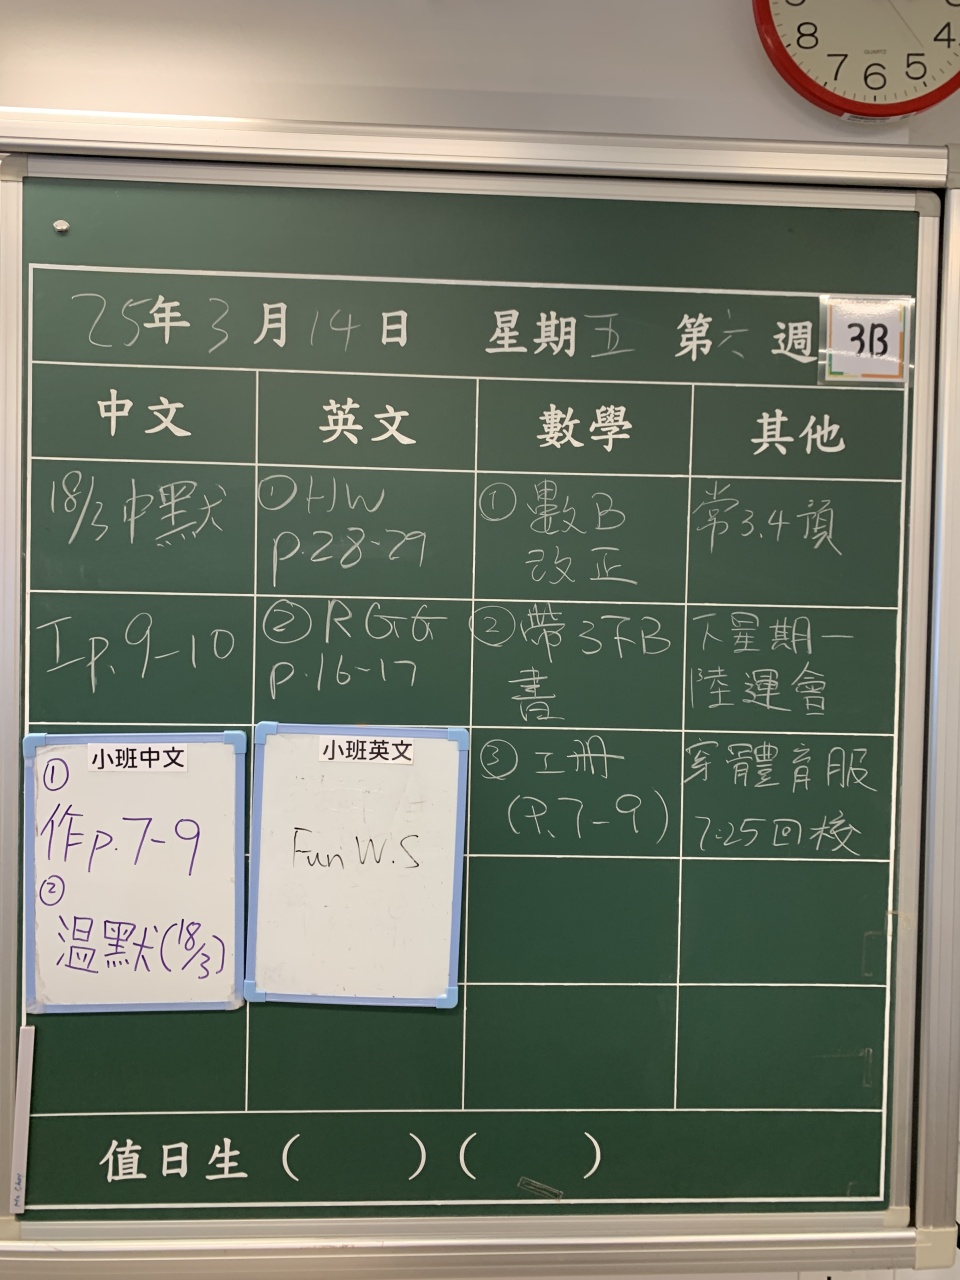 8 7 6 5 4
QUARTZ
25年3月14日 星期五 第六週 3B
中文 英文 數學 其他
18/3 中默
I p.9-10
小班中文
①
作p.7-9
②
温默(18/3)
① HW
p.28-29
② RGG
p.16-17
小班英文
Fun W.S
① 數B
改正
② 帶3下B
書
③ 工冊
(P.7-9)
常3.4預
下星期一
陸運會
穿體育服
7:25回校
值日生 ( ) ( )